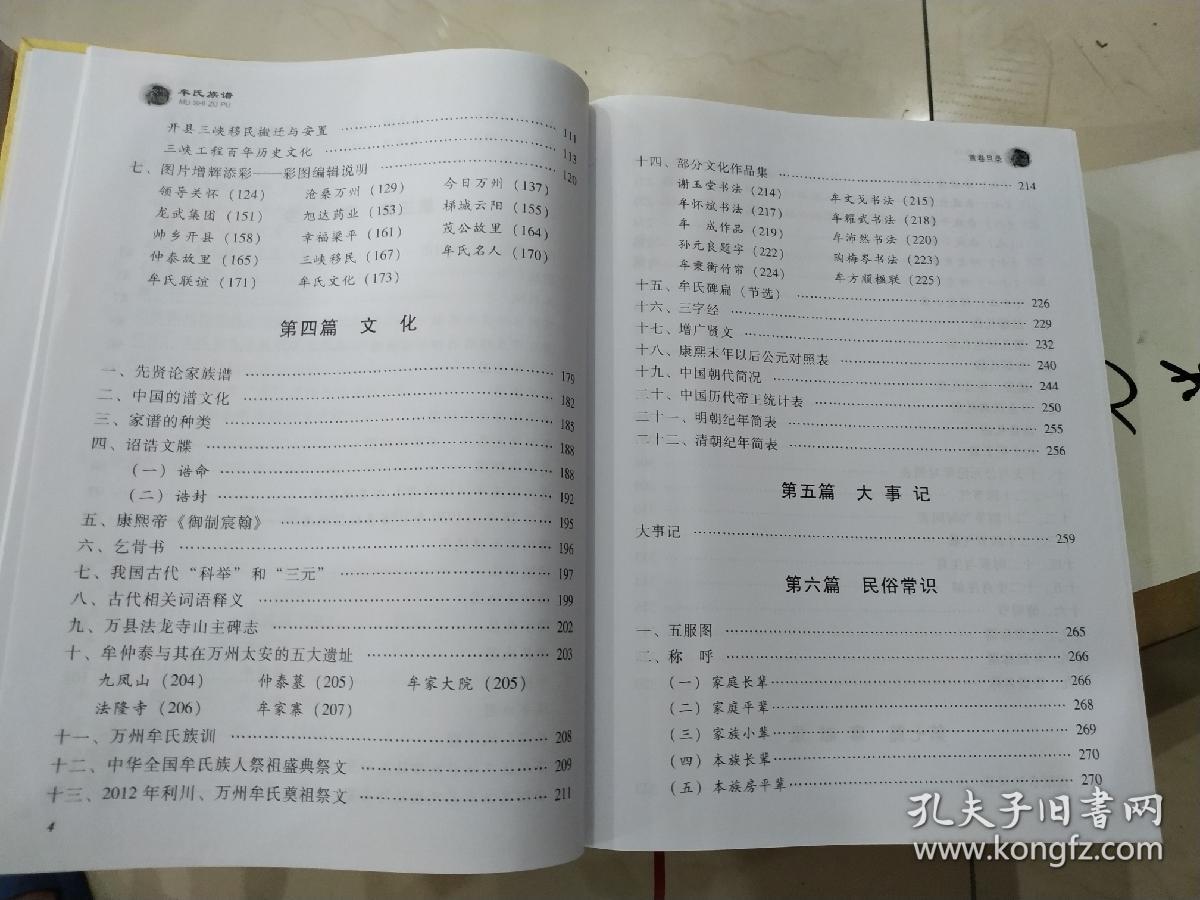 牟氏族谱
MU SHI ZU PU
开县三峡移民搬迁与安置 111
三峡工程百年历史文化 113
七、图片增辉添彩——彩图编辑说明 120
领导关怀（124） 沧桑万州（129） 今日万州（137）
龙武集团（151） 旭达药业（153） 梯城云阳（155）
帅乡开县（158） 幸福梁平（161） 茂公故里（164）
仲泰故里（165） 三峡移民（167） 牟氏名人（170）
牟氏联谊（171） 牟氏文化（173）
第四篇 文 化
一、先贤论家族谱 179
二、中国的谱文化 182
三、家谱的种类 185
四、诏诰文牒 188
（一）诰命 188
（二）诰封 192
五、康熙帝《御制宸翰》 195
六、乞骨书 196
七、我国古代“科举”和“三元” 197
八、古代相关词语释义 199
九、万县法龙寺山主碑志 202
十、牟仲泰与其在万州太安的五大遗址 203
九凤山（204） 仲泰墓（205） 牟家大院（205）
法隆寺（206） 牟家寨（207）
十一、万州牟氏族训 208
十二、中华全国牟氏族人祭祖盛典祭文 209
十三、2012年利川、万州牟氏奠祖祭文 211
4
首卷目录
十四、部分文化作品集 214
谢玉堂书法（214） 牟文戈书法（215）
牟怀斌书法（217） 牟耀武书法（218）
牟 成作品（219） 牟沛然书法（220）
孙元良题字（222） 陶梅岑书法（223）
牟秉衡竹帘（224） 牟方顺楹联（225）
十五、牟氏碑扁（节选） 226
十六、三字经 229
十七、增广贤文 232
十八、康熙末年以后公元对照表 240
十九、中国朝代简况 244
二十、中国历代帝王统计表 250
二十一、明朝纪年简表 255
二十二、清朝纪年简表 256
第五篇 大 事 记
大事记 259
第六篇 民俗常识
一、五服图 265
二、称 呼 266
（一）家庭长辈 266
（二）家庭平辈 268
（三）家族小辈 269
（四）本族长辈 270
（五）本族房平辈 270
孔夫子旧书网
www.kongfz.com